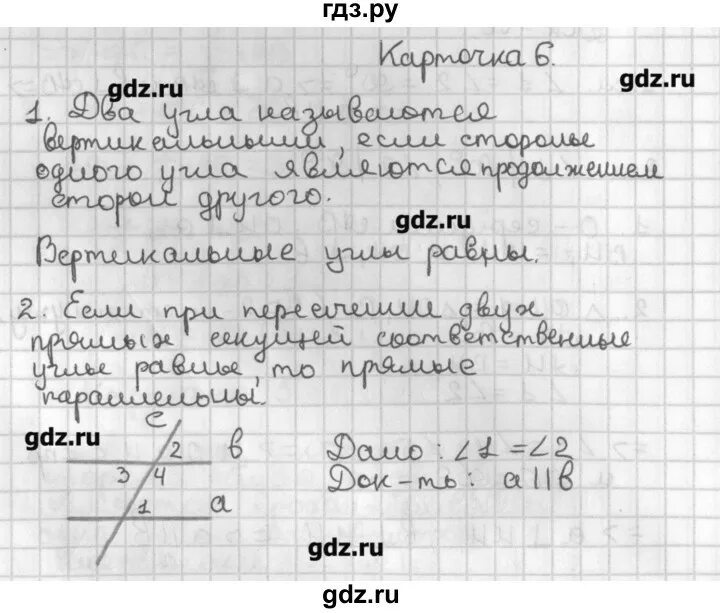 гдз.ру
Карточка 6.
gdz.ru
gdz.ru
1. Два угла называются
вертикальными, если стороны
одного угла являются продолжением
сторон другого.
gdz.ru
Вертикальные углы равны.
2. Если при пересечении двух
прямых секущей соответственные
углы равны, то прямые
параллельны.
gdz.ru
c
2 b
3 4
1 a
Дано: ∠1 = ∠2
Док-ть: a || b
gdz.ru
gdz.ru